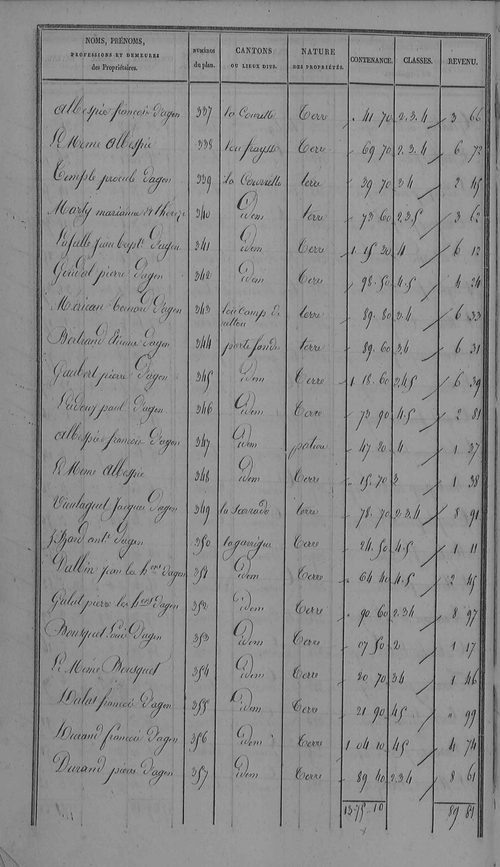 NOMS, PRÉNOMS, PROFESSIONS ET DEMEURES des Propriétaires. NUMÉROS du plan. CANTONS OU LIEUX DITS. NATURE DES PROPRIÉTÉS. CONTENANCE. CLASSES. REVENU.
Albespie françois d'agen 337 la Courrette Terre " 41 70 2.3.4 3 66
Le Meme Albespie 338 Terre " 69 70 2.3.4 6 72
Temple d'agen 339 la Courrette terre " 39 70 3 4 2 45
Marty marianne 340 Idem terre " 73 60 2.3.5 3 62
Jean Bapte d'agen 341 Idem Terre 1 15 30 4 6 12
pierre d'agen 342 Idem Terre " 98 50 4.5 4 24
bernard d'agen 343 terre " 89 80 3.4 6 33
Bertrand Etienne d'agen 344 terre " 89 60 3.4 6 31
Gaubert pierre d'agen 345 Idem Terre 1 18 60 2.4.5 6 39
paul d'agen 346 Idem Terre " 73 90 4.5 2 81
Albespie françois d'agen 347 Idem patus " 47 20 4 1 37
Le Meme Albespie 348 Idem Terre " 15 70 2 1 38
Jacques d'agen 349 terre " 78 70 2.3.4 8 91
ante d'agen 350 lagarrigue Terre " 24 50 4.5 1 11
Jean les hers d'agen 351 Idem Terre " 64 40 4.5 2 45
pierre les hers d'agen 352 Idem Terre " 90 60 2.3.4 8 97
Bousquet d'agen 353 Idem Terre " 07 50 2 1 17
Le Meme Bousquet 354 Idem Terre " 20 70 3 4 1 46
françois d'agen 355 Idem Terre " 21 90 4.5 " 99
Durand françois d'agen 356 Idem Terre 1 04 10 4.5 4 74
Durand pierre d'agen 357 Idem Terre " 89 40 2.3.4 8 61
13 75 10 89 81